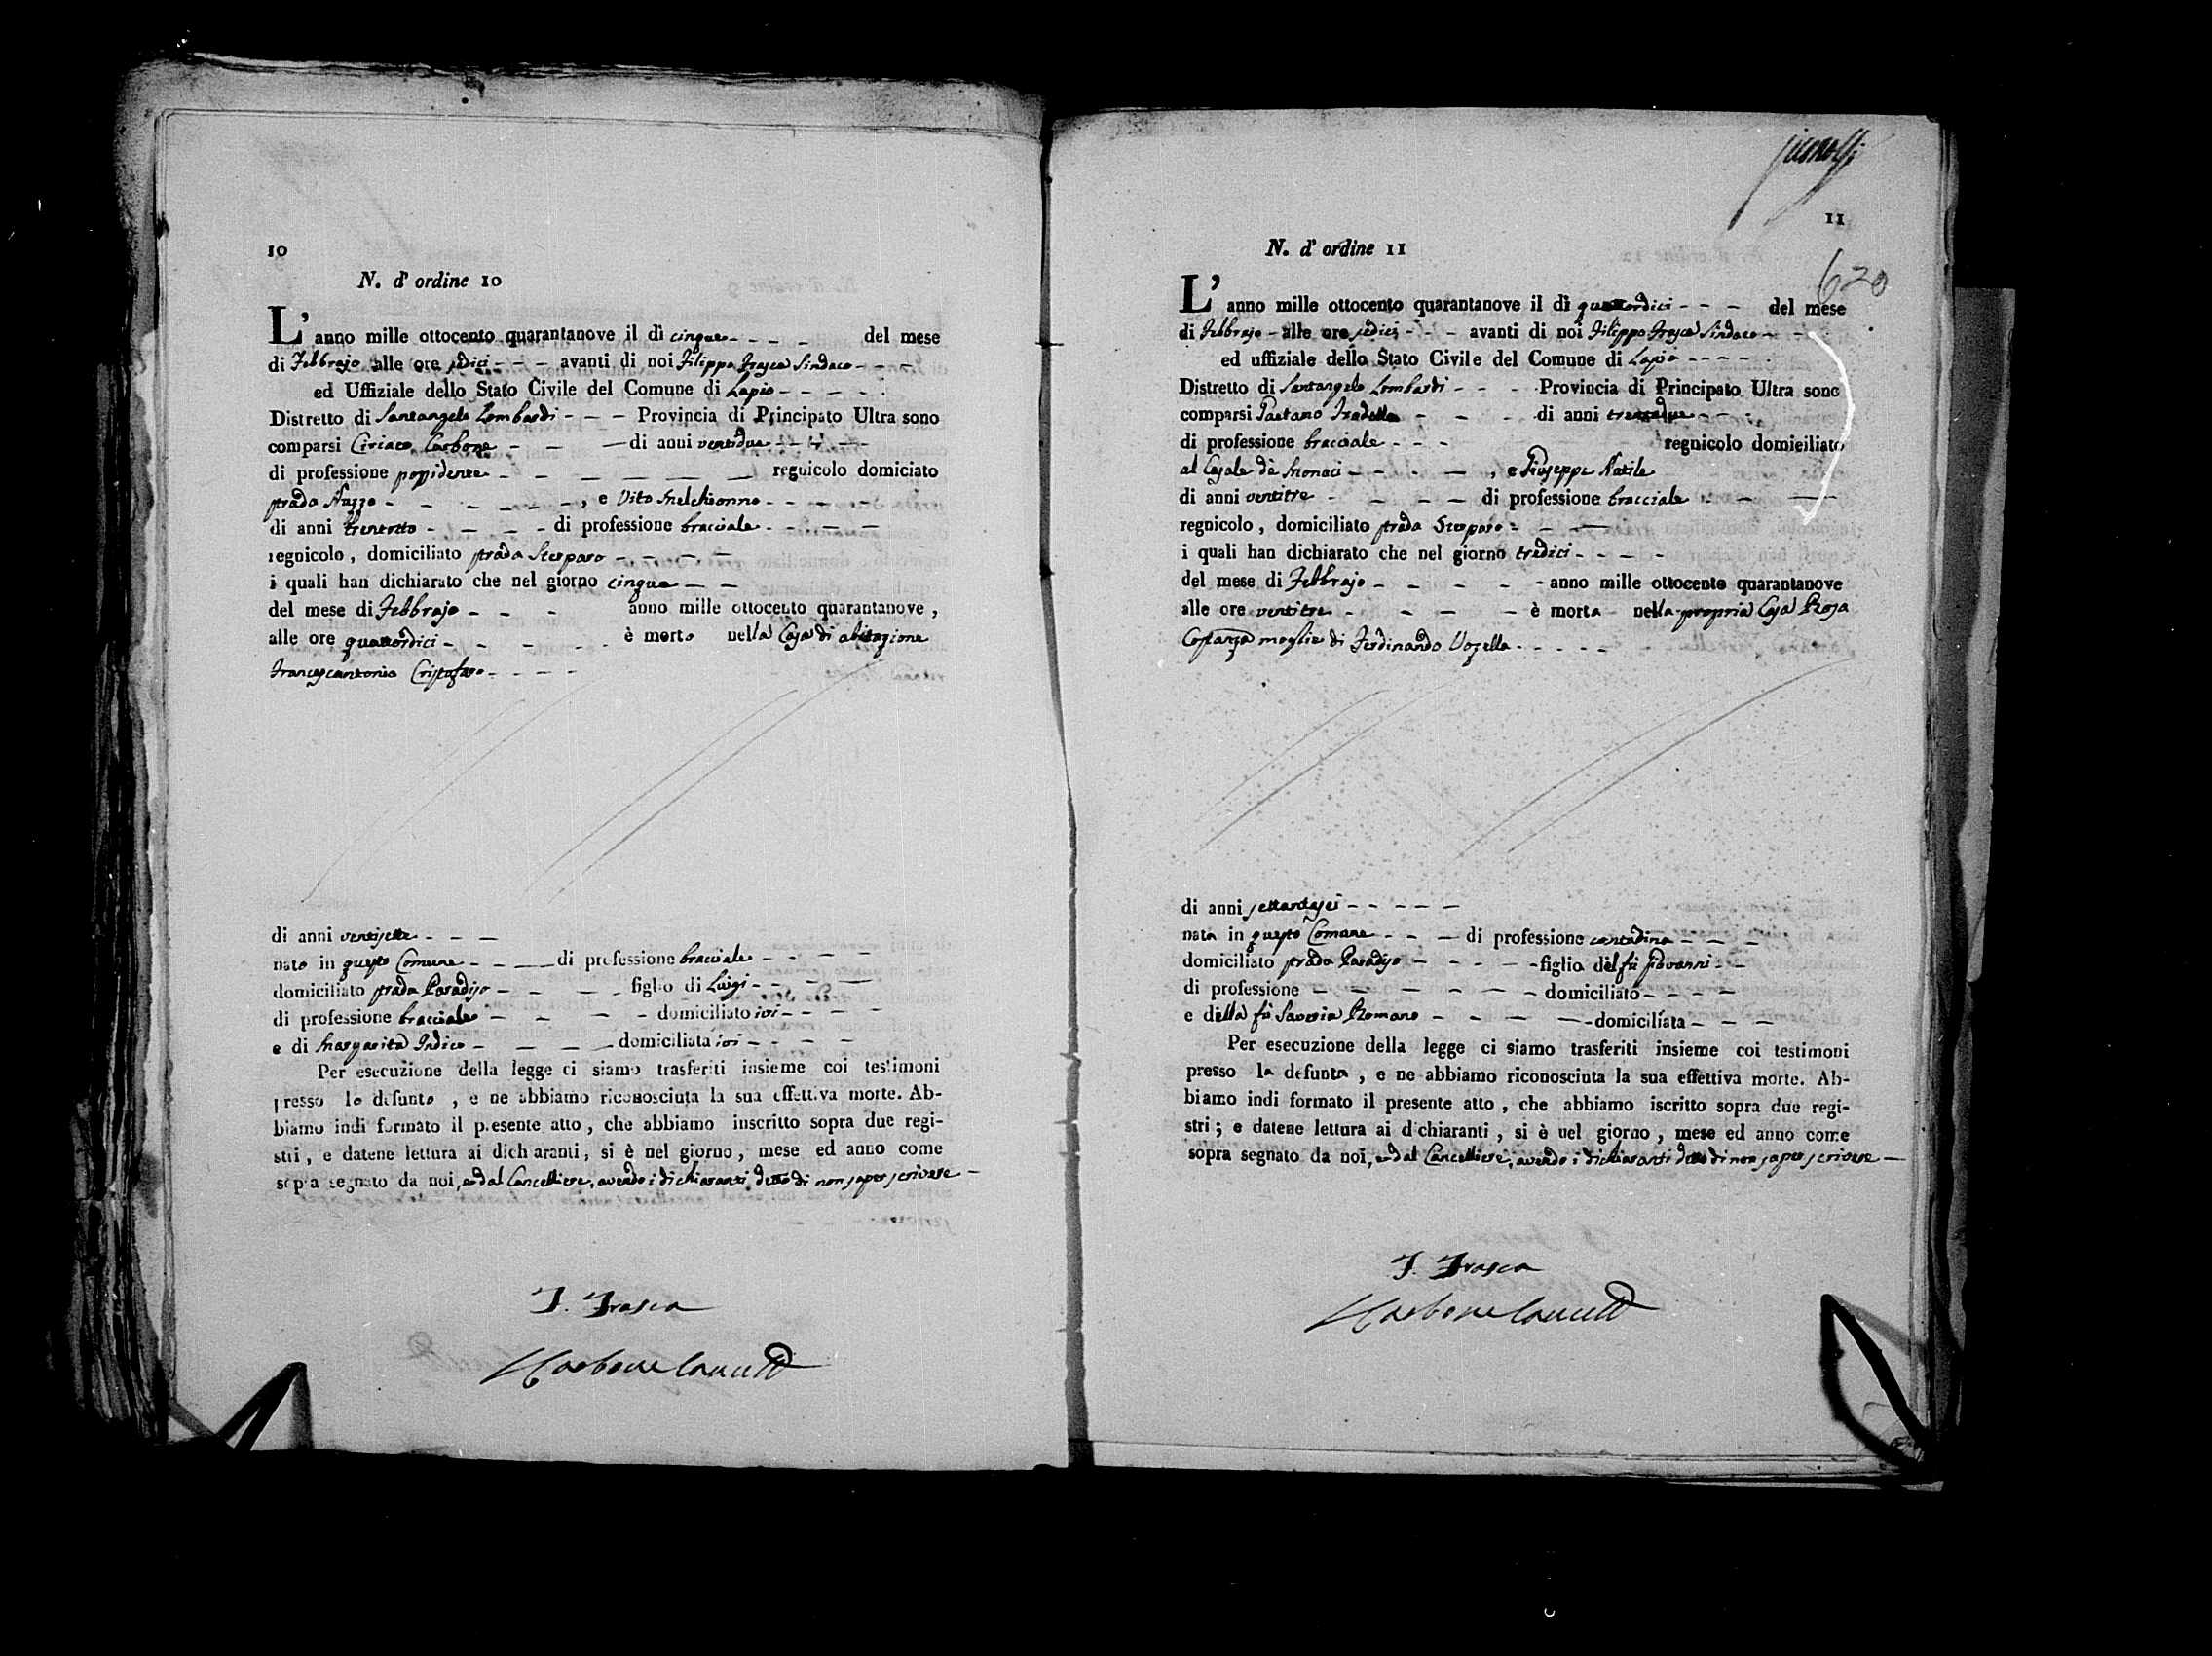 10
N. d' ordine 10
L' anno mille ottocento quarantanove il dì cinque del mese
di Febbrajo alle ore sedici avanti di noi Filippo Frasca Sindaco
ed Uffiziale dello Stato Civile del Comune di Lapio
Distretto di Santangelo Lombardi Provincia di Principato Ultra sono
comparsi Ciriaco Carbone di anni ventidue
di professione possidente regnicolo domiciato
strada Nuzzo , e Vito Melchionno
di anni trentotto di professione bracciale
regnicolo, domiciliato strada Sterparo
i quali han dichiarato che nel giorno cinque
del mese di Febbrajo anno mille ottocento quarantanove,
alle ore quattordici è morto nella Casa di abitazione
Francescantonio Cristofaro
di anni ventisette
nato in questo Comune di professione bracciale
domiciliato strada Paradiso figlio di Luigi
di professione bracciale domiciliato ivi
e di Margarita Indico domiciliata ivi
Per esecuzione della legge ci siamo trasferiti insieme coi testimoni
presso lo defunto , e ne abbiamo riconosciuta la sua effettiva morte. Ab-
biamo indi formato il presente atto, che abbiamo inscritto sopra due regi-
stri, e datene lettura ai dichiaranti, si è nel giorno, mese ed anno come
sopra segnato da noi, e dal Cancelliere, avendo i dichiaranti detto di non saper scrivere
F. Frasca
Carbone Cancell
11
620
N. d' ordine 11
L' anno mille ottocento quarantanove il dì quattordici del mese
di Febbrajo alle ore sedici avanti di noi Filippo Frasca Sindaco
ed uffiziale dello Stato Civile del Comune di Lapio
Distretto di Santangelo Lombardi Provincia di Principato Ultra sono
comparsi Gaetano Iradella di anni trentadue
di professione bracciale regnicolo domieiliato
al Casale de Monaci , e Giuseppe Natile
di anni ventitre di professione bracciale
regnicolo, domiciliato strada Sterparo
i quali han dichiarato che nel giorno tredici
del mese di Febbrajo anno mille ottocento quarantanove
alle ore ventitre è morta nella propria Casa Rosa
Costanza moglie di Ferdinando Vozella
di anni settantasei
nata in questo Comune di professione contadina
domiciliato strada Paradiso figlia del fù Giovanni
di professione domiciliato
e della fù Saveria Romano domiciliata
Per esecuzione della legge ci siamo trasferiti insieme coi testimoni
presso la defunta , e ne abbiamo riconosciuta la sua effettiva morte. Ab-
biamo indi formato il presente atto, che abbiamo iscritto sopra due regi-
stri; e datene lettura ai dichiaranti, si è nel giorno, mese ed anno come
sopra segnato da noi, e dal Cancelliere, avendo i dichiaranti detto di non saper scrivere
F. Frasca
Carbone Cancell